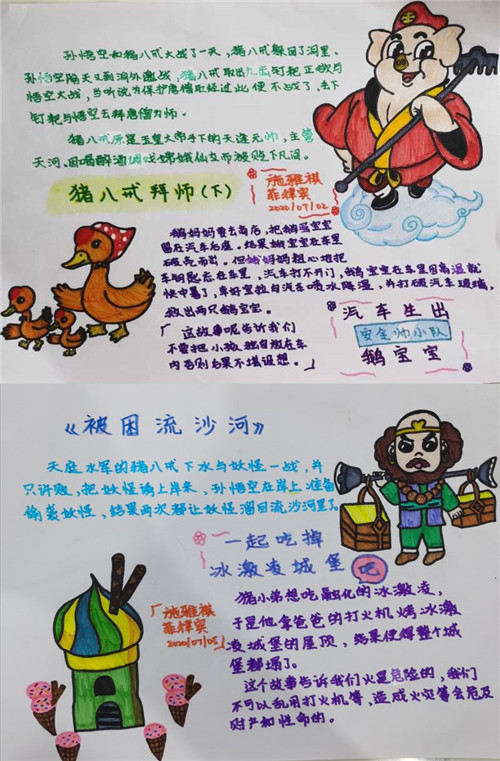 孙悟空和猪八戒大战了一天，猪八戒躲回了洞里。
孙悟空隔天又到洞外邀战，猪八戒取出九齿钉耙正欲与
悟空大战，当听说为保护唐僧取经过此便不战了，丢下
钉耙与悟空去拜唐僧为师。
猪八戒原是玉皇大帝手下的天蓬元帅，主管
天河。因喝醉酒调戏嫦娥仙女而被贬下凡间。
猪八戒拜师(下)
施雅祺
菲律宾
2020/07/02
鹅妈妈要去商店，把鹅蛋宝宝
留在汽车后座。结果鹅宝宝在车里
破壳而出。但鹅妈妈粗心地把
车钥匙忘在车里。汽车打不开门，鹅宝宝在车里因高温就
快中暑了，幸好宝拉向汽车喷水降温，并打破汽车玻璃，
救出两只鹅宝宝。
「这故事呢告诉我们
不要把小孩独自放在车
内否则后果不堪设想。」
汽车生出
安全帅小队
鹅宝宝
《被困流沙河》
天庭水军的猪八戒下水与妖怪一战，并
只许败，把妖怪诱上岸来，孙悟空在岸上准备
偷袭妖怪，结果两次都让妖怪溜回流沙河里了。
一起吃掉
冰激凌城堡吧
「施雅祺
菲律宾
2020/07/05」
猪小弟想吃融化的冰激凌，
于是他拿爸爸的打火机烤冰激
凌城堡的屋顶，结果使得整个城
堡都塌了。
这个故事告诉我们火是危险的，我们
不可以乱用打火机等，造成火灾等会危及
财产和性命的。